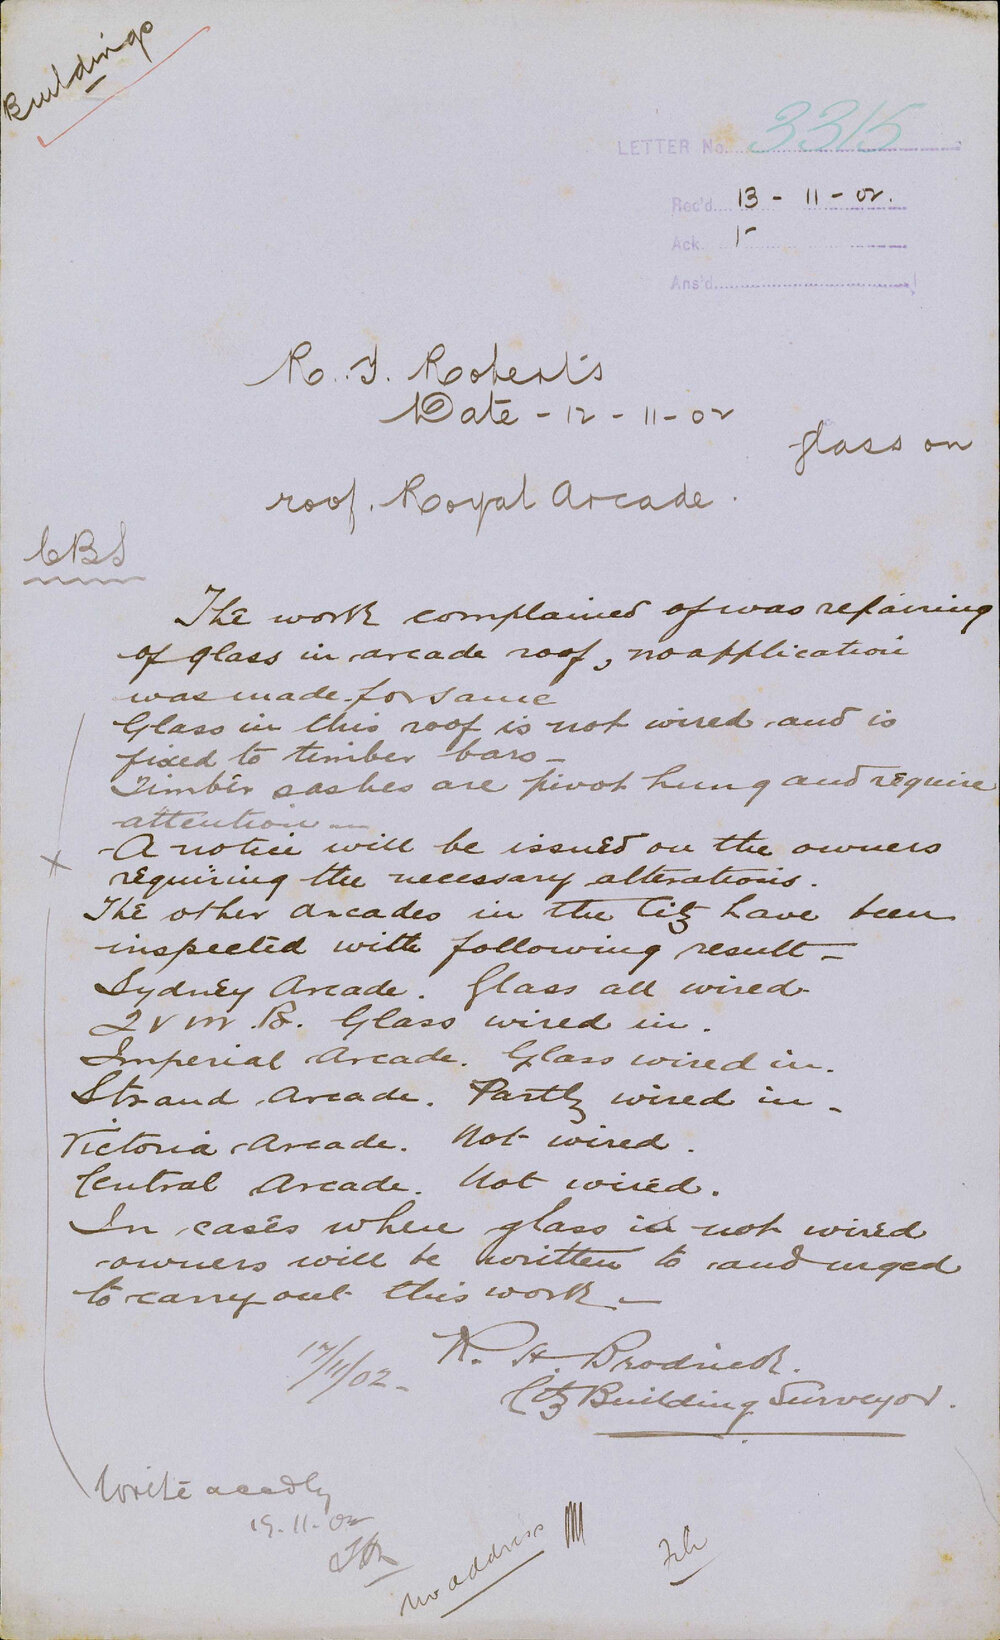 Buildings
LETTER No. 3315
Rec'd. 13 - 11 - 02.
Ack
Ans'd
R. J. Roberts
Date - 12 - 11 - 02
glass on
roof. Royal Arcade.
CBS
The work complained of was repairing
of glass in arcade roof, no application
was made for same
Glass in this roof is not wired and is
fixed to timber bars -
Timber sashes are pivot hung and require
attention -
A notice will be issued on the owners
requiring the necessary alterations.
The other arcades in the City have been
inspected with following result -
Sydney Arcade. Glass all wired
Q V M. B. Glass wired in.
Imperial Arcade. Glass wired in.
Strand Arcade. Partly wired in -
Victoria Arcade. Not wired.
Central Arcade. Not wired.
In cases where glass is not wired
owners will be written to and urged
to carry out this work -
R. H. Brodrick.
17/11/02 -
City Building Surveyor.
Write accdly
19.11.02
No address